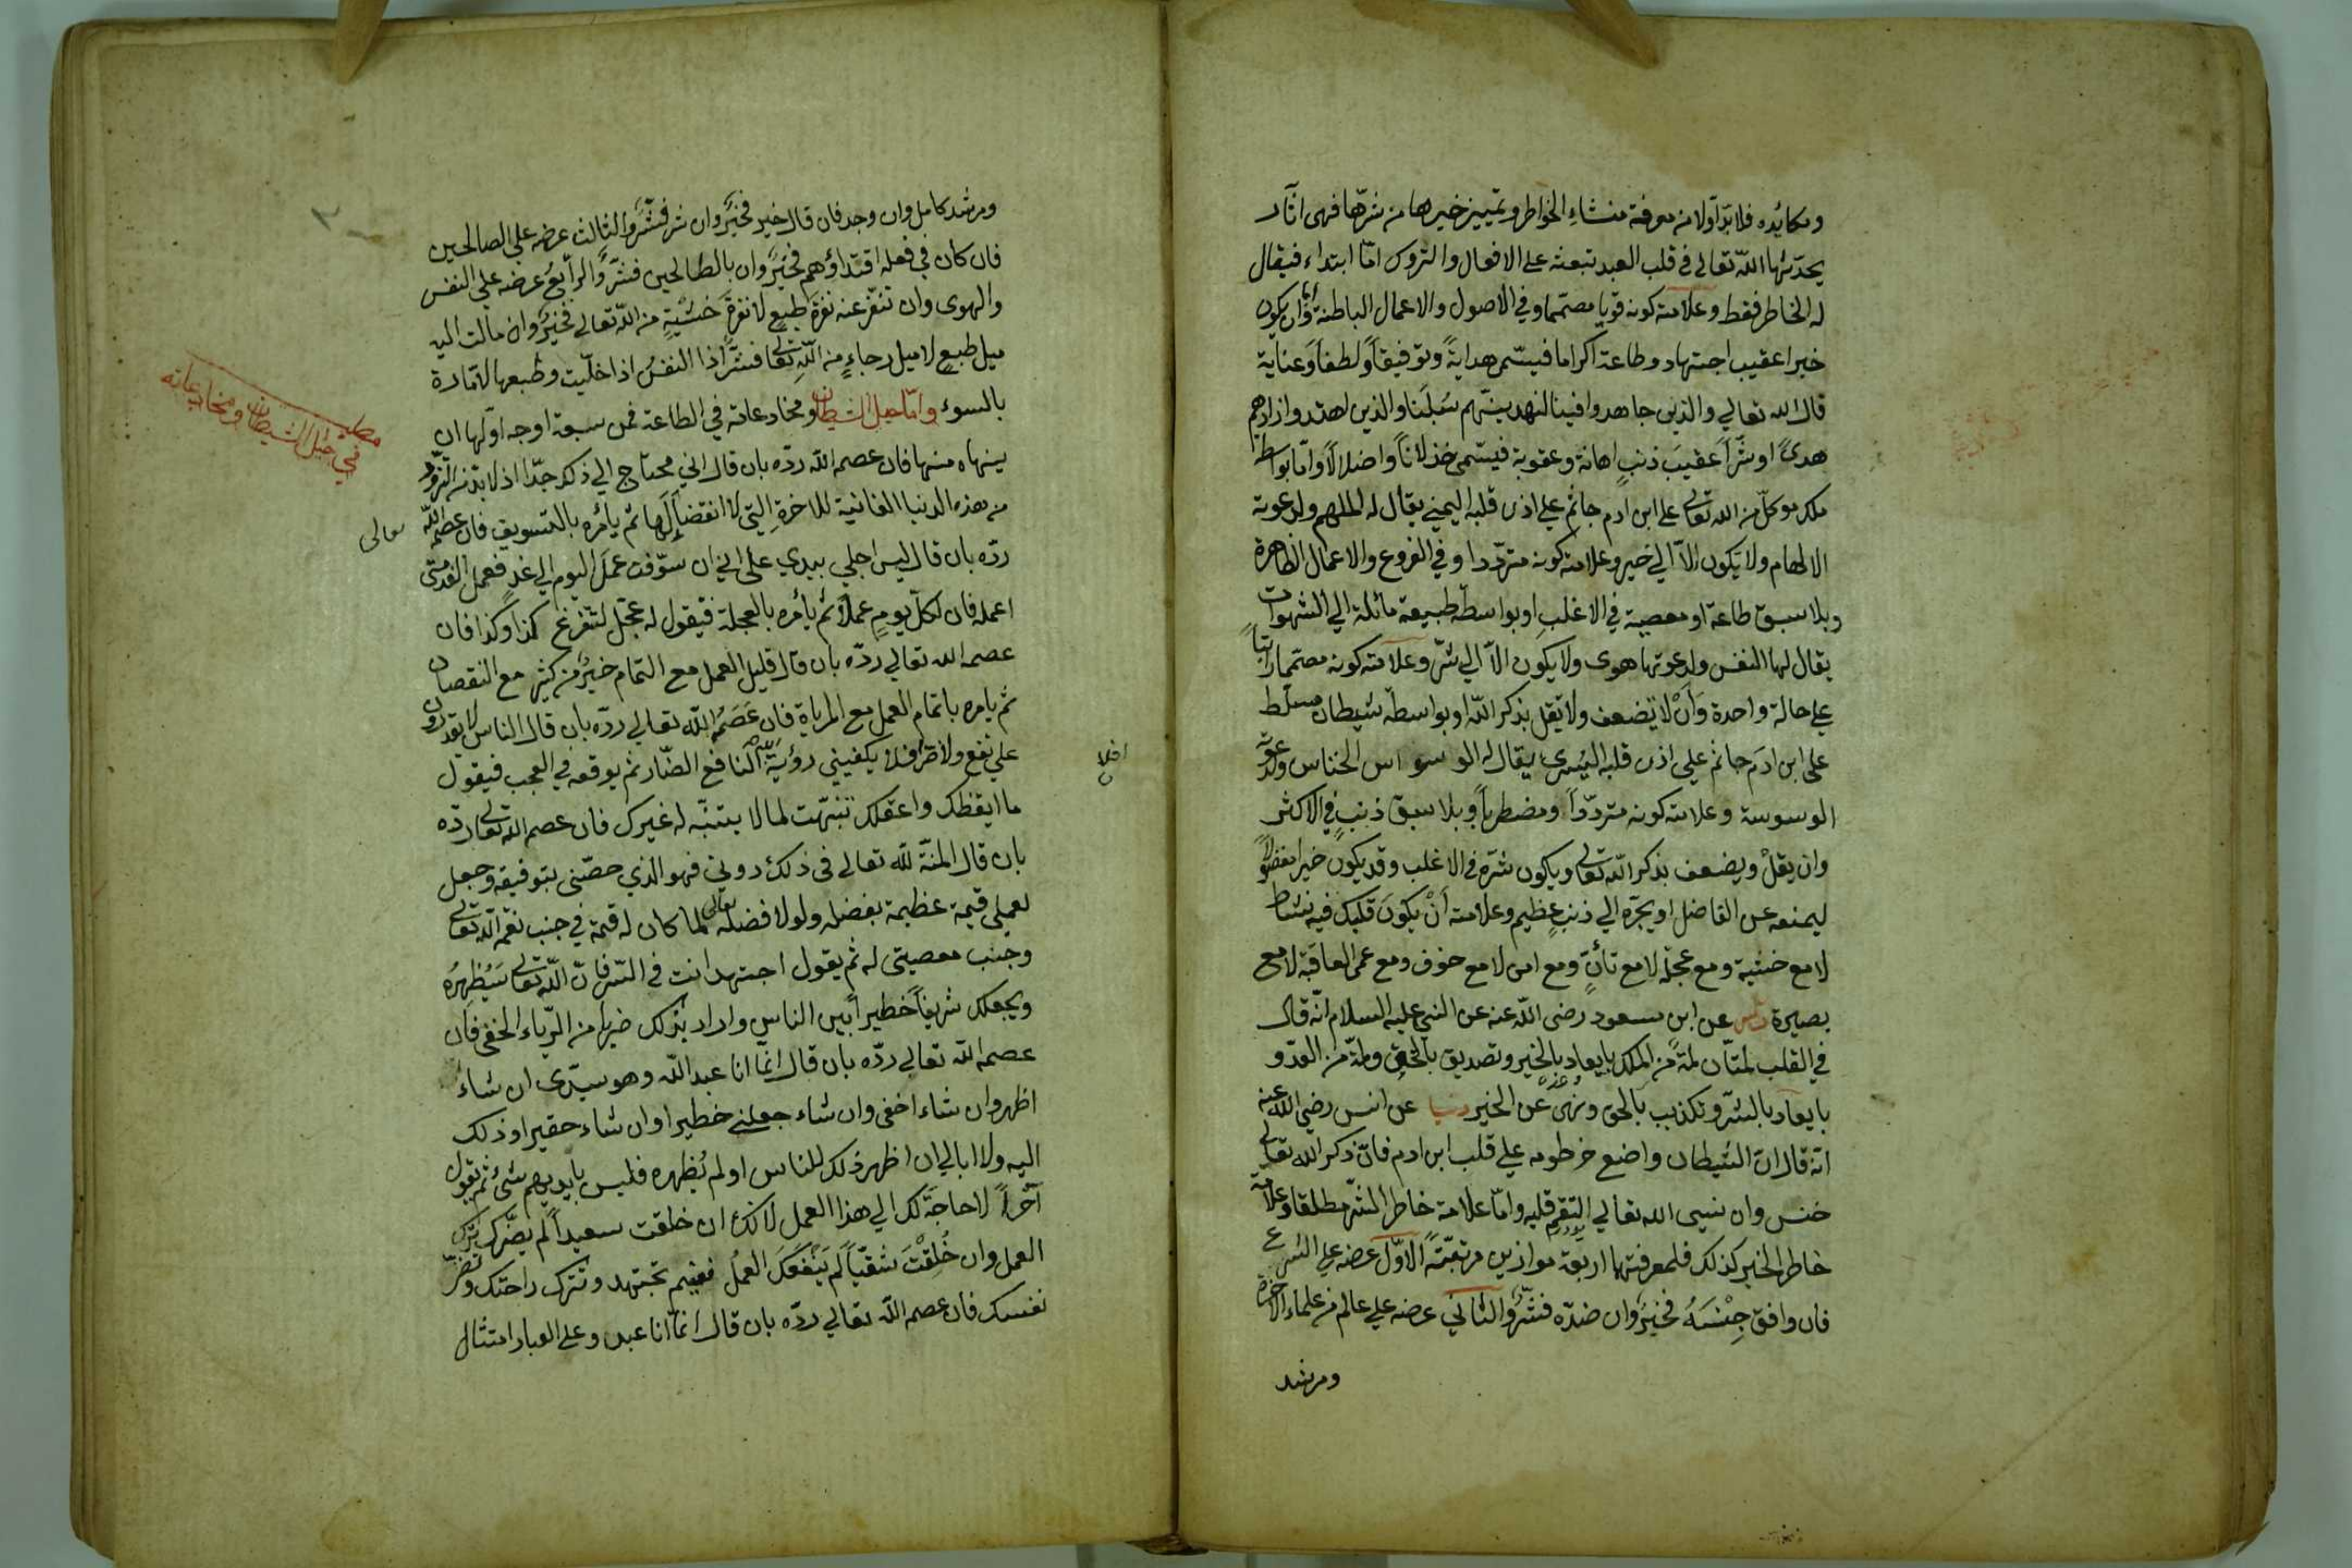 ومكايده فلا بدّ اولا من معرفة منشاءِ الخواطر وتمييز خيرها من شرّها فهى اثآر
يحدثها اللّه تعالى فى قلب العبد تبعثه على الافعال والتروك امّا ابتداء فيقال
له الخاطر فقط وعلامته كونه قويا مصمّما وفي الاصول والاعمال الباطنة وان يكون
خيرا عقيب اجتهاد وطاعة اكراما فيسمّى هدايةً وتوفيقاً ولطفاً وعناية
قال الله تعالي والذين جاهدوا فينا لنهدينّهم سُبُلَنا والذين اهتدوا زادهم
هدىً او شرّاً عقيبَ ذنبٍ اهانة وعقوبة فيسّمى خذلاناً واضلالاً وامّا بواسطة
ملك موكلّ من الله تعالى على ابن ادم جاثم علي اذن قلبه اليمني يقال له الملهم ولدعوته
الالهام ولا يكون الاّ الي خير وعلامته كونه متردّدا وفي الفروع والاعمال الظاهرة
وبلا سبق طاعة او معصية في الاغلبِ او بواسطة طبيعة مائلة الي الشهوات
يقال لها النفس ولدعوتها هوى ولا يكون الاّ الي شرّ وعلامته كونه مصمّما راتبا
علي حالة واحدة وَأَنْ لا يضعف ولا يقل بذكر اللّه او بواسطة شيطان مسلّط
على ابن ادَم جاثم علي اذن قلبه اليُسرى يقال له الوسواس الخناس ولدعوته
الوسوسة وعلامته كونه متردّداً ومضطرباً وبلا سبق ذنبٍ في الاكثر
وان يقلْ ويضعف بذكر اللّه تعالى ويكون شرّه فى الاغلب وقد يكون خيرا مفضولاً
ليمنعه عن الفاضل او يجرّه الي ذنبٍ عظيم وعلامته أنْ يكونَ قلبك فيه نشاط
لا مع خشية ومع عجلة لا مع تأنٍّ ومع امن لا مع خوف ومع عمى العاقبة لا مع
بصيرة عن ابن مسعود رضى اللّه عنه عن النبى عليه السلام انّه قال
في القلب لمّتان لمّة من الملك بايعاد بالخير وتصديق بالحق ولمّة من العدّو
بايعاد بالشرّ وتكذيب بالحق ونهى عن الخير دنيا عن انس رضى اللّه عنه
انّه قال ان الشيطان واضع خرطومه علي قلب ابن ادم فان ذكر الله تعالى
خنس وان نسى الله تعالي التقم قلبه وامّا علامة خاطر الشرّ مطلقا وعلامة
خاطر الخير كذلك فلمعرفتها اربعة موازين مرتبّةً الاوّل عرضه علي الشرع
فان وافق جِنْسَهُ فخيرٌ وان ضدّه فشرٌّ والثاني عرضه علي عالم من علماء الاخرة
ومرشد
ومرشد كامل وان وجد فان قال خير فخيرٌ وان شر فشرٌّ والثالث عرضه علي الصالحين
فان كان في فعله اقتداؤهم فخيرٌ وان بالطالحين فشرٌّ والرابعُ عرضه علي النفس
والهوى وان تنفر عنه نفرة طبعٍ لا نفرة خَشْيَةٍ من اللّه تعالي فخيرٌ وان مالت اليه
ميل طبعٍ لا ميل رجاءٍ من اللّهِ تعالى فشرٌّ اذا النفسُ اذا خلّيت وطبعها لأمّارة
بالسوء وامّا حيل الشيطان ومخادعاته في الطاعة فمن سبعة اوجه اوّلها ان
مطلب
في حيل الشيطان ومخادعاته
ينهاه منها فان عصمه اللّه ردّه بان قال اني محتاج الي ذلك جدّا اذ لا بدّ من التزوّد
من هذه الدنيا الفانية للاخرةِ التي لا انقضاءَ لها ثم يأمره بالتسويف فان عصمه اللّه
تعالى
ردّه بان قال ليس اجلي بيدي على اني ان سوّفت عملَ اليوم الي غدٍ فعمل الغد متى
اعمله فان لكلّ يومٍ عملاً ثم يأمره بالعجلة فيقول له عجّل لتتفرغ كذا وكذا فان
عصمه الله تعالي ردّه بان قال قليل العمل مع التمام خيرٌ من كثير مع النقصان
ثم يامره باتمام العمل مع المراياة فان عَصَمُهُ اللّه تعالي ردّه بان قال الناس لا يقدرون
علي نفع ولا ضرّ افلا يكفيني رؤيةُ اللّه النافع الضّار ثم يوقعه في العجب فيقول
افلا
ما ايقظك واعقلك تنبّهت لما لا يتنبّه له غيرك فان عصمه الله تعالى ردّه
بان قال المنّة للّه تعالي فى ذلك دوني فهو الذي خصّنى بتوفيقه وجعل
لعملى قيمة عظيمة بفضله ولولا فضله تعالى لما كان له قيمة في جنب نعمة اللّه تعالى
وجنب معصيتى له ثم يقول اجتهد انت فى السّر فان اللّه تعالى سَيُظهِرُه
ويجعلك شريفاً خطيراً بين الناس واراد بذلك ضربا من الرّياء الخفى فان
عصمه اللّه تعالي ردّه بان قال انّما انا عبد اللّه وهو سيدّى ان شاءَ
اظهر وان شاء اخفى وان شاء جعلنى خطيرا وان شاء حقيرا وذلك
اليه ولا ابالى ان اظهر ذلك للناس او لم يُظهره فليس بايديهم شئ ثم يقول
آخراً لا حاجَةَ لك الي هذا العمل لانك ان خلقت سعيداً لم يضّرك ترك
العمل وان خُلِقْتَ شقيّاً لم يَنْفَعَكَ العملُ ففيم تجتهد وتترك راحتك وتضرّ
نفسك فان عصمه اللّه تعالي ردّه بان قال انّما انا عبد وعلي العباد امتثال